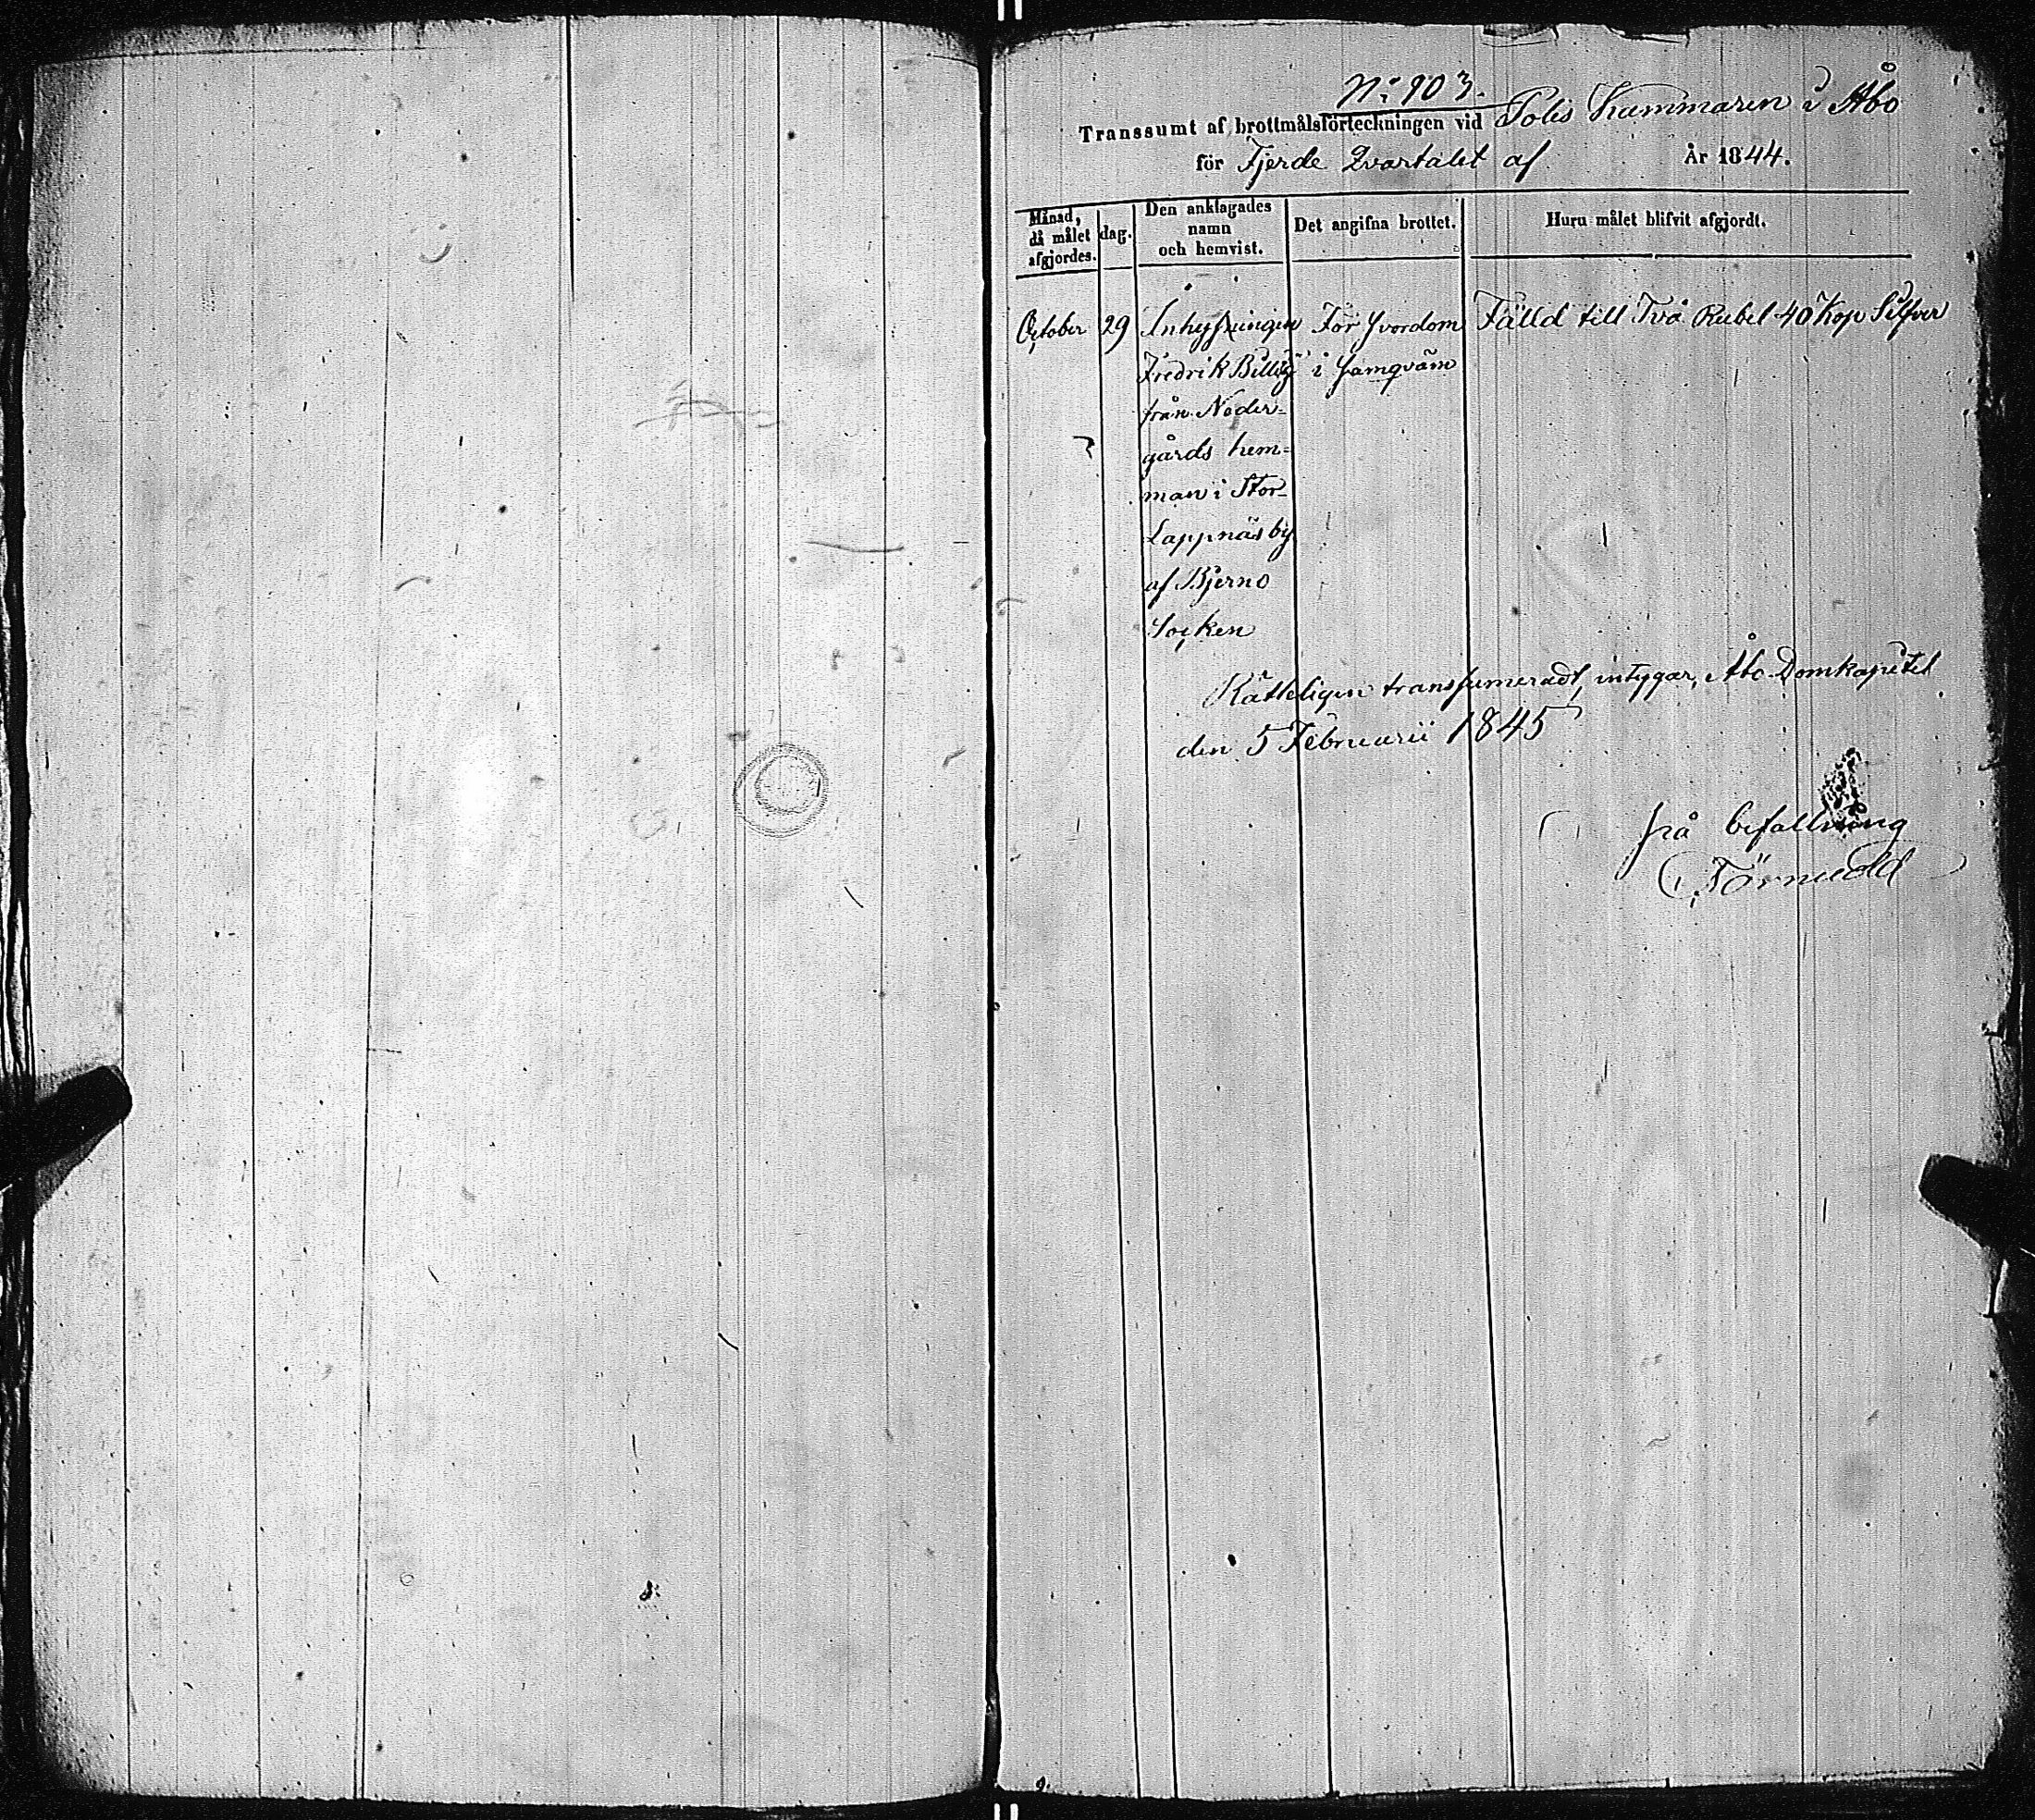 N:º 903.
Transsumt af brottmålsförteckningen vid Polis Kammaren i Åbo
för Fjerde Qvartalet af År 1844.
Månad,
då målet
afgjordes.
dag.
Den anklagades
namn
och hemvist.
Det angifna brottet.
Huru målet blifvit afgjordt.
October 29 Inhysingen För svordom Fälld till Två Rubel 40 Kop Silfver
Fredrik Billig i samqväm
från Neder-
gårds hem-
man i Stor-
Lappnäs by
af Bjerno
Socken
Rätteligen transsumeradt, intygar, Åbo Domkapitel
den 5 Februarii 1845
på befallning
Törnudd